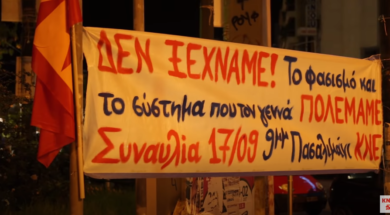 ΔΕΝ ΞΕΧΝΑΜΕ! Το φασισμό και
το σύστημα που τον γεννά ΠΟΛΕΜΑΜΕ
Συναυλία 17/09 9μμ Πασαλιμάνι ΚΝΕ